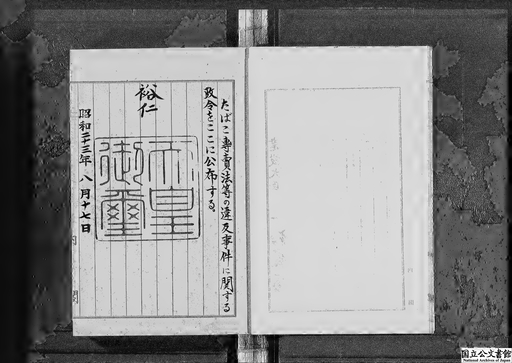 たばこ專賣法等の違反事件に関する
政令をここに公布する。
裕仁
天皇
御璽
昭和二十三年 八月十七日
内閣
国立公文書館
National Archives of Japan